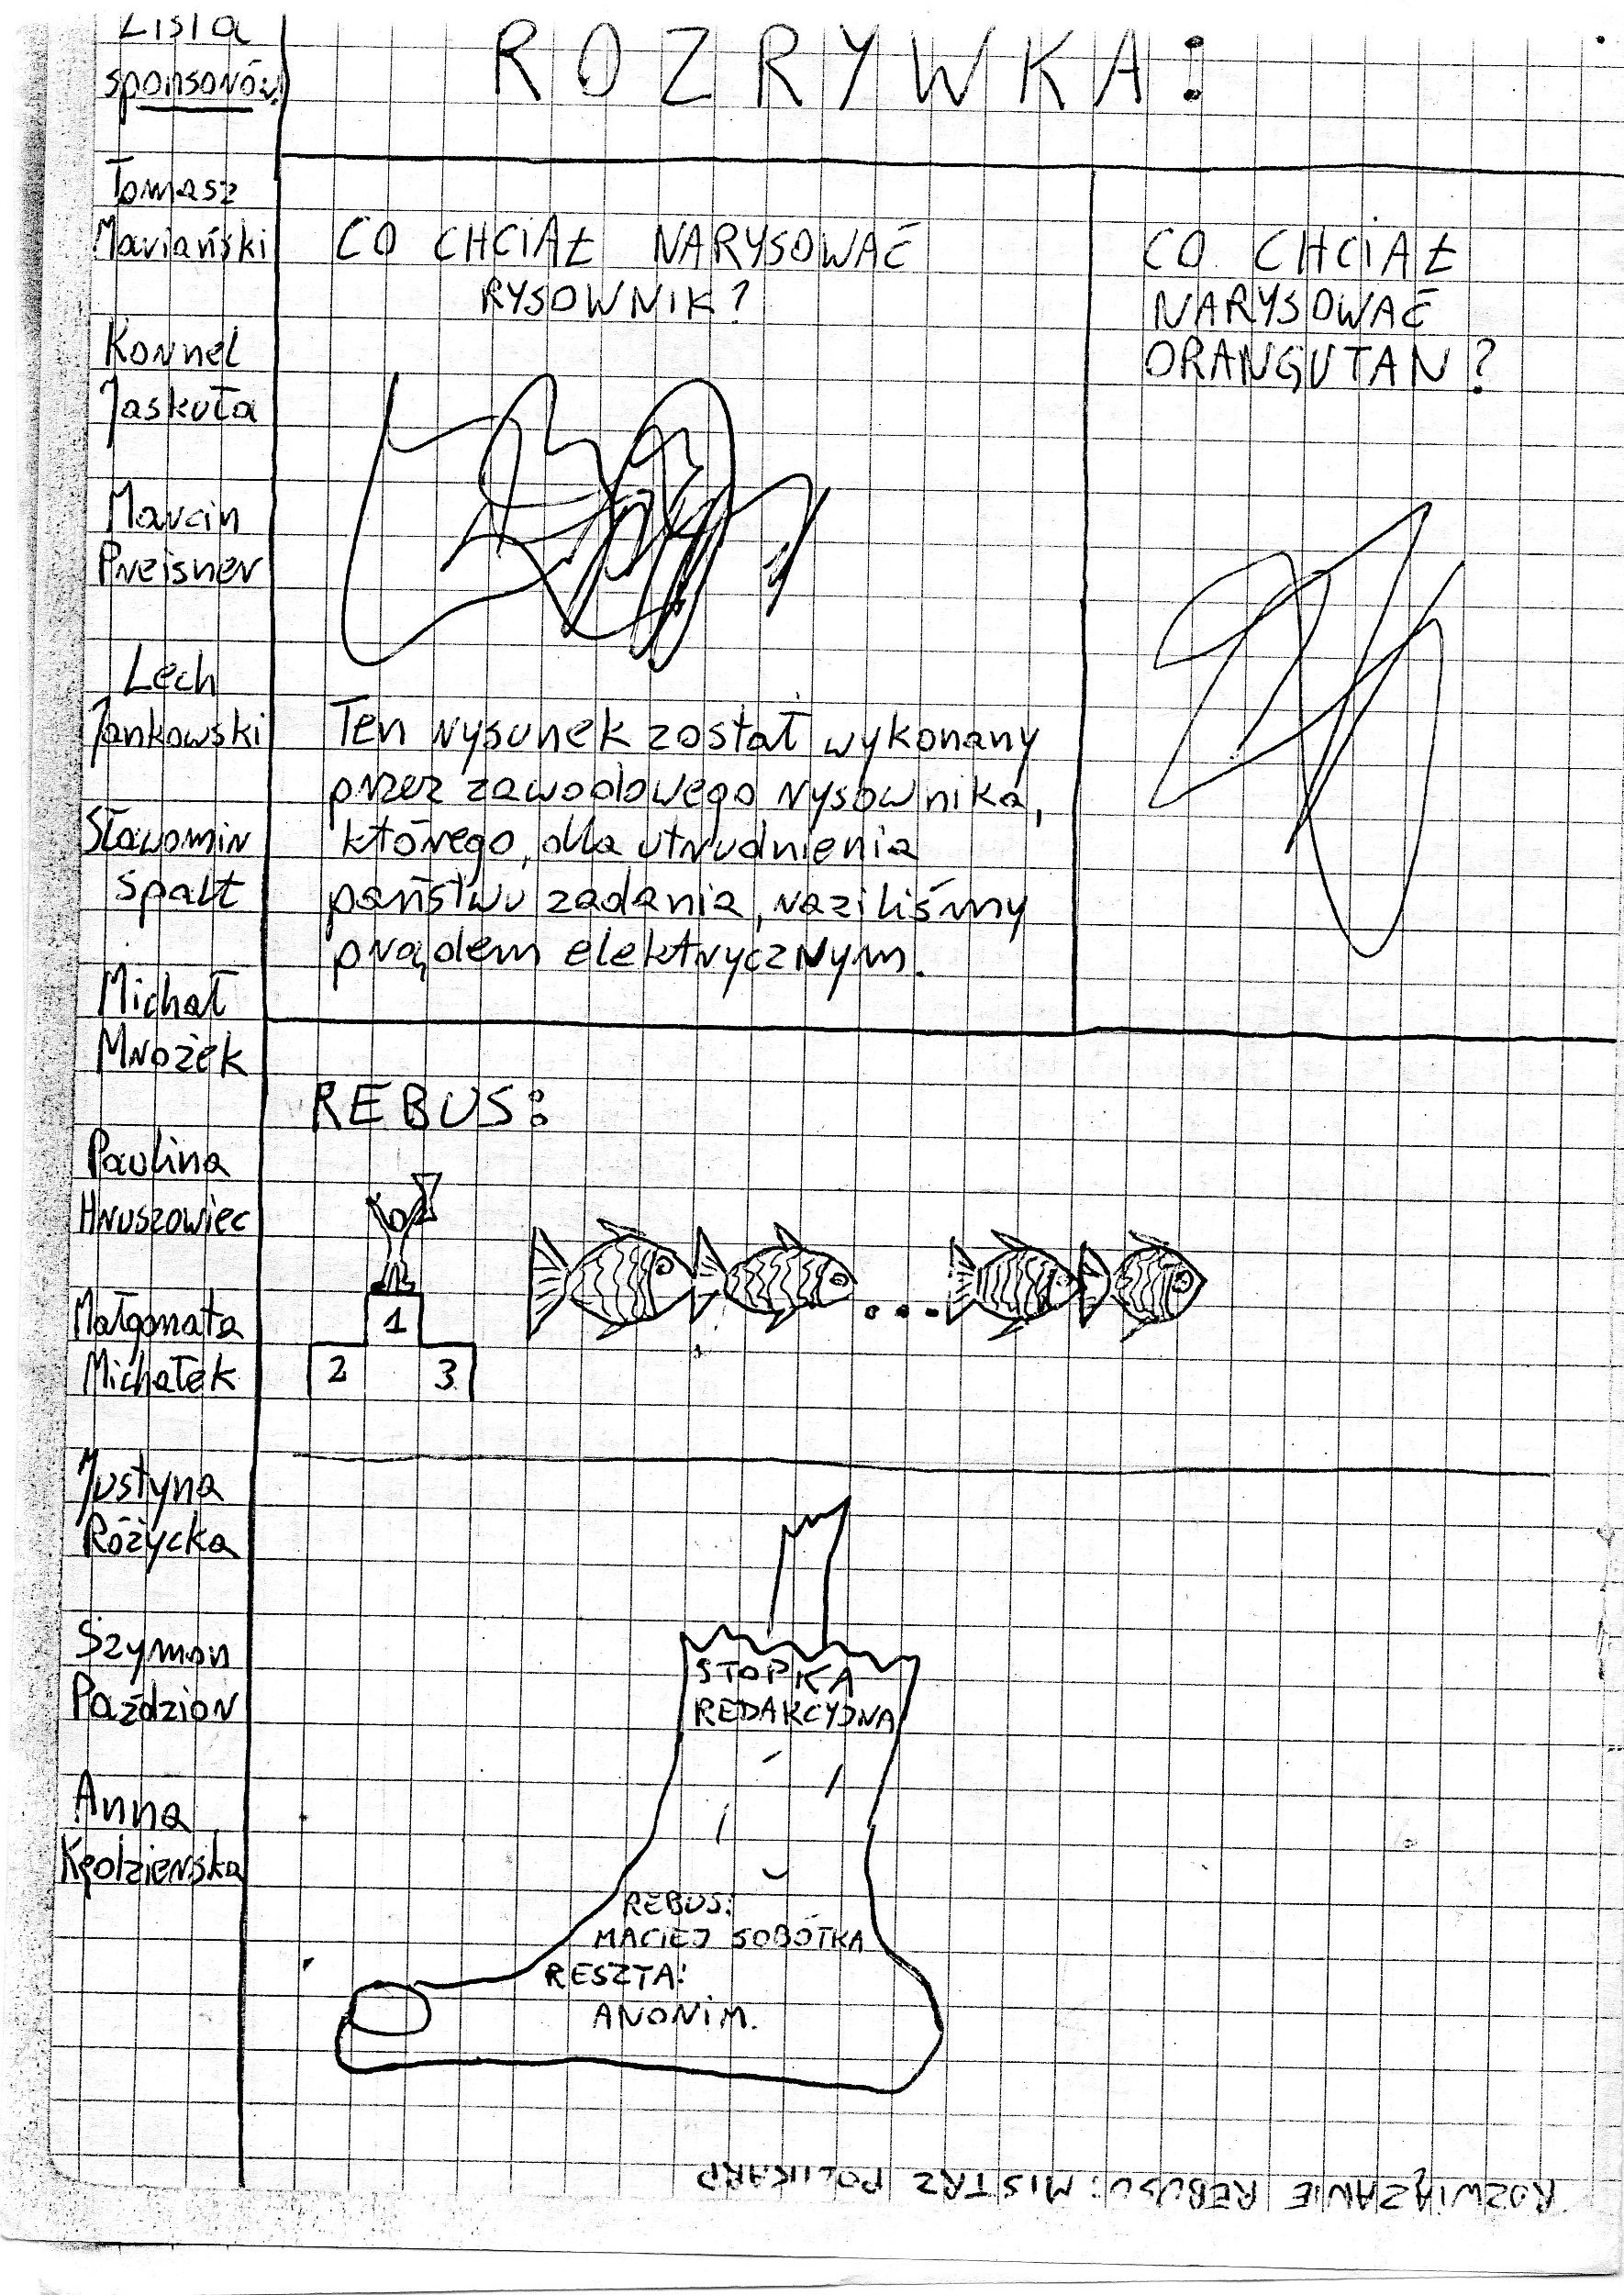 Lista
sponsorów:
Tomasz
Mariański
Kornel
Jaskuła
Marcin
Preisner
Lech
Jankowski
Sławomir
Spalt
Michał
Mrożek
Paulina
Hruszowiec
Małgorzata
Michałek
Justyna
Różycka
Szymon
Paździor
Anna
Kędzierska
ROZRYWKA:
CO CHCIAŁ NARYSOWAĆ
RYSOWNIK?
Ten rysunek został wykonany
przez zawodowego rysownika,
którego, dla utrudnienia
państwu zadania, raziliśmy
prądem elektrycznym.
CO CHCIAŁ
NARYSOWAĆ
ORANGUTAN?
REBUS:
1
2 3
STOPKA
REDAKCYJNA
REBUS:
MACIEJ SOBÓTKA
RESZTA:
ANONIM.
ROZWIĄZANIE REBUSU: MISTRZ POLIKARP